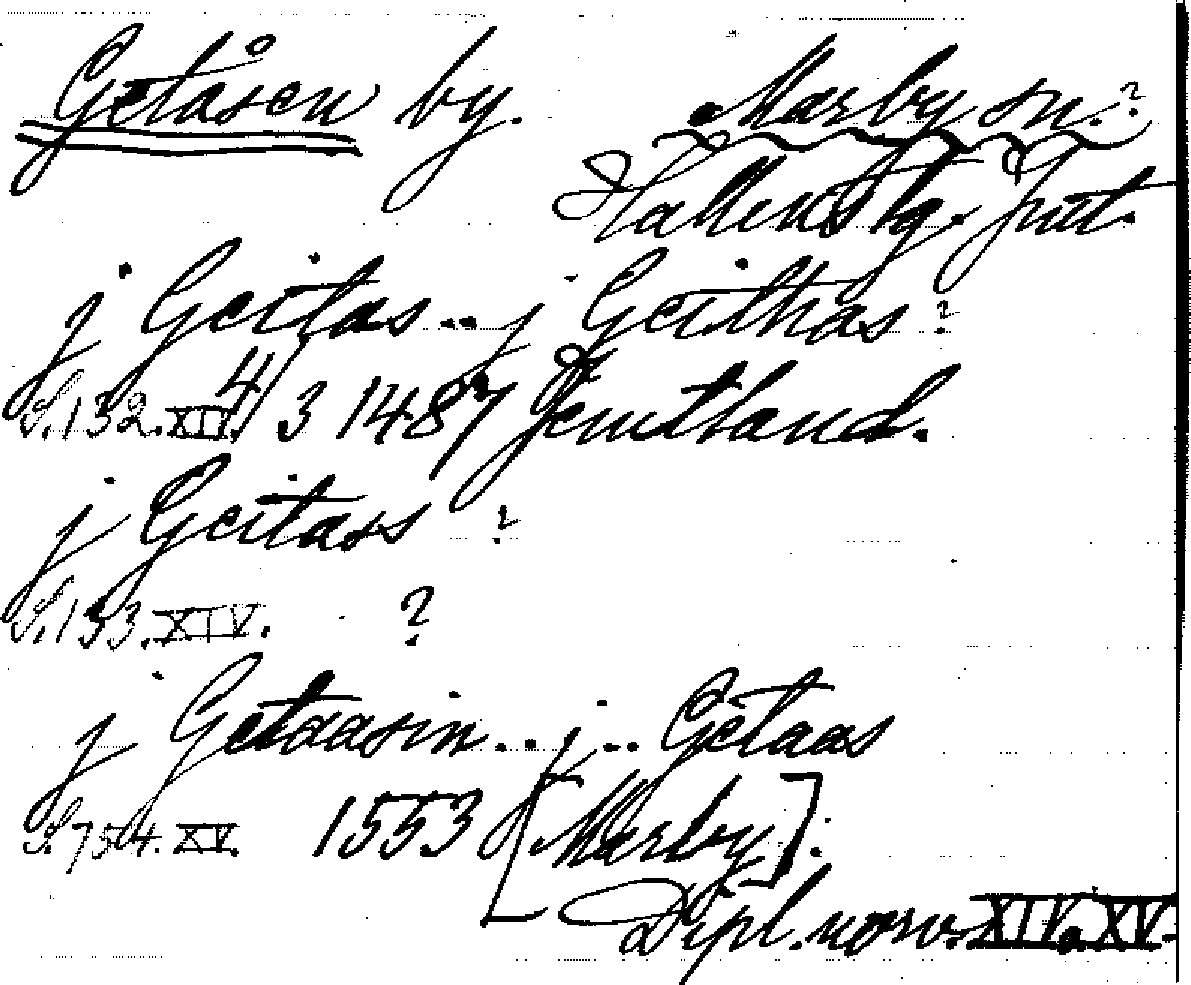 Getåsen by. Marby sn.?
Hallens tg. Jmt.
j Geitas... j Geithas?
S.132.XIV. 4/3 1487 Jemtland.
j Geitass ?
S.133.XIV. ?
j Getaasin... j... Getaas
S.754.XV. 1553 [Marby]:
Dipl. norv. XIV o. XV.